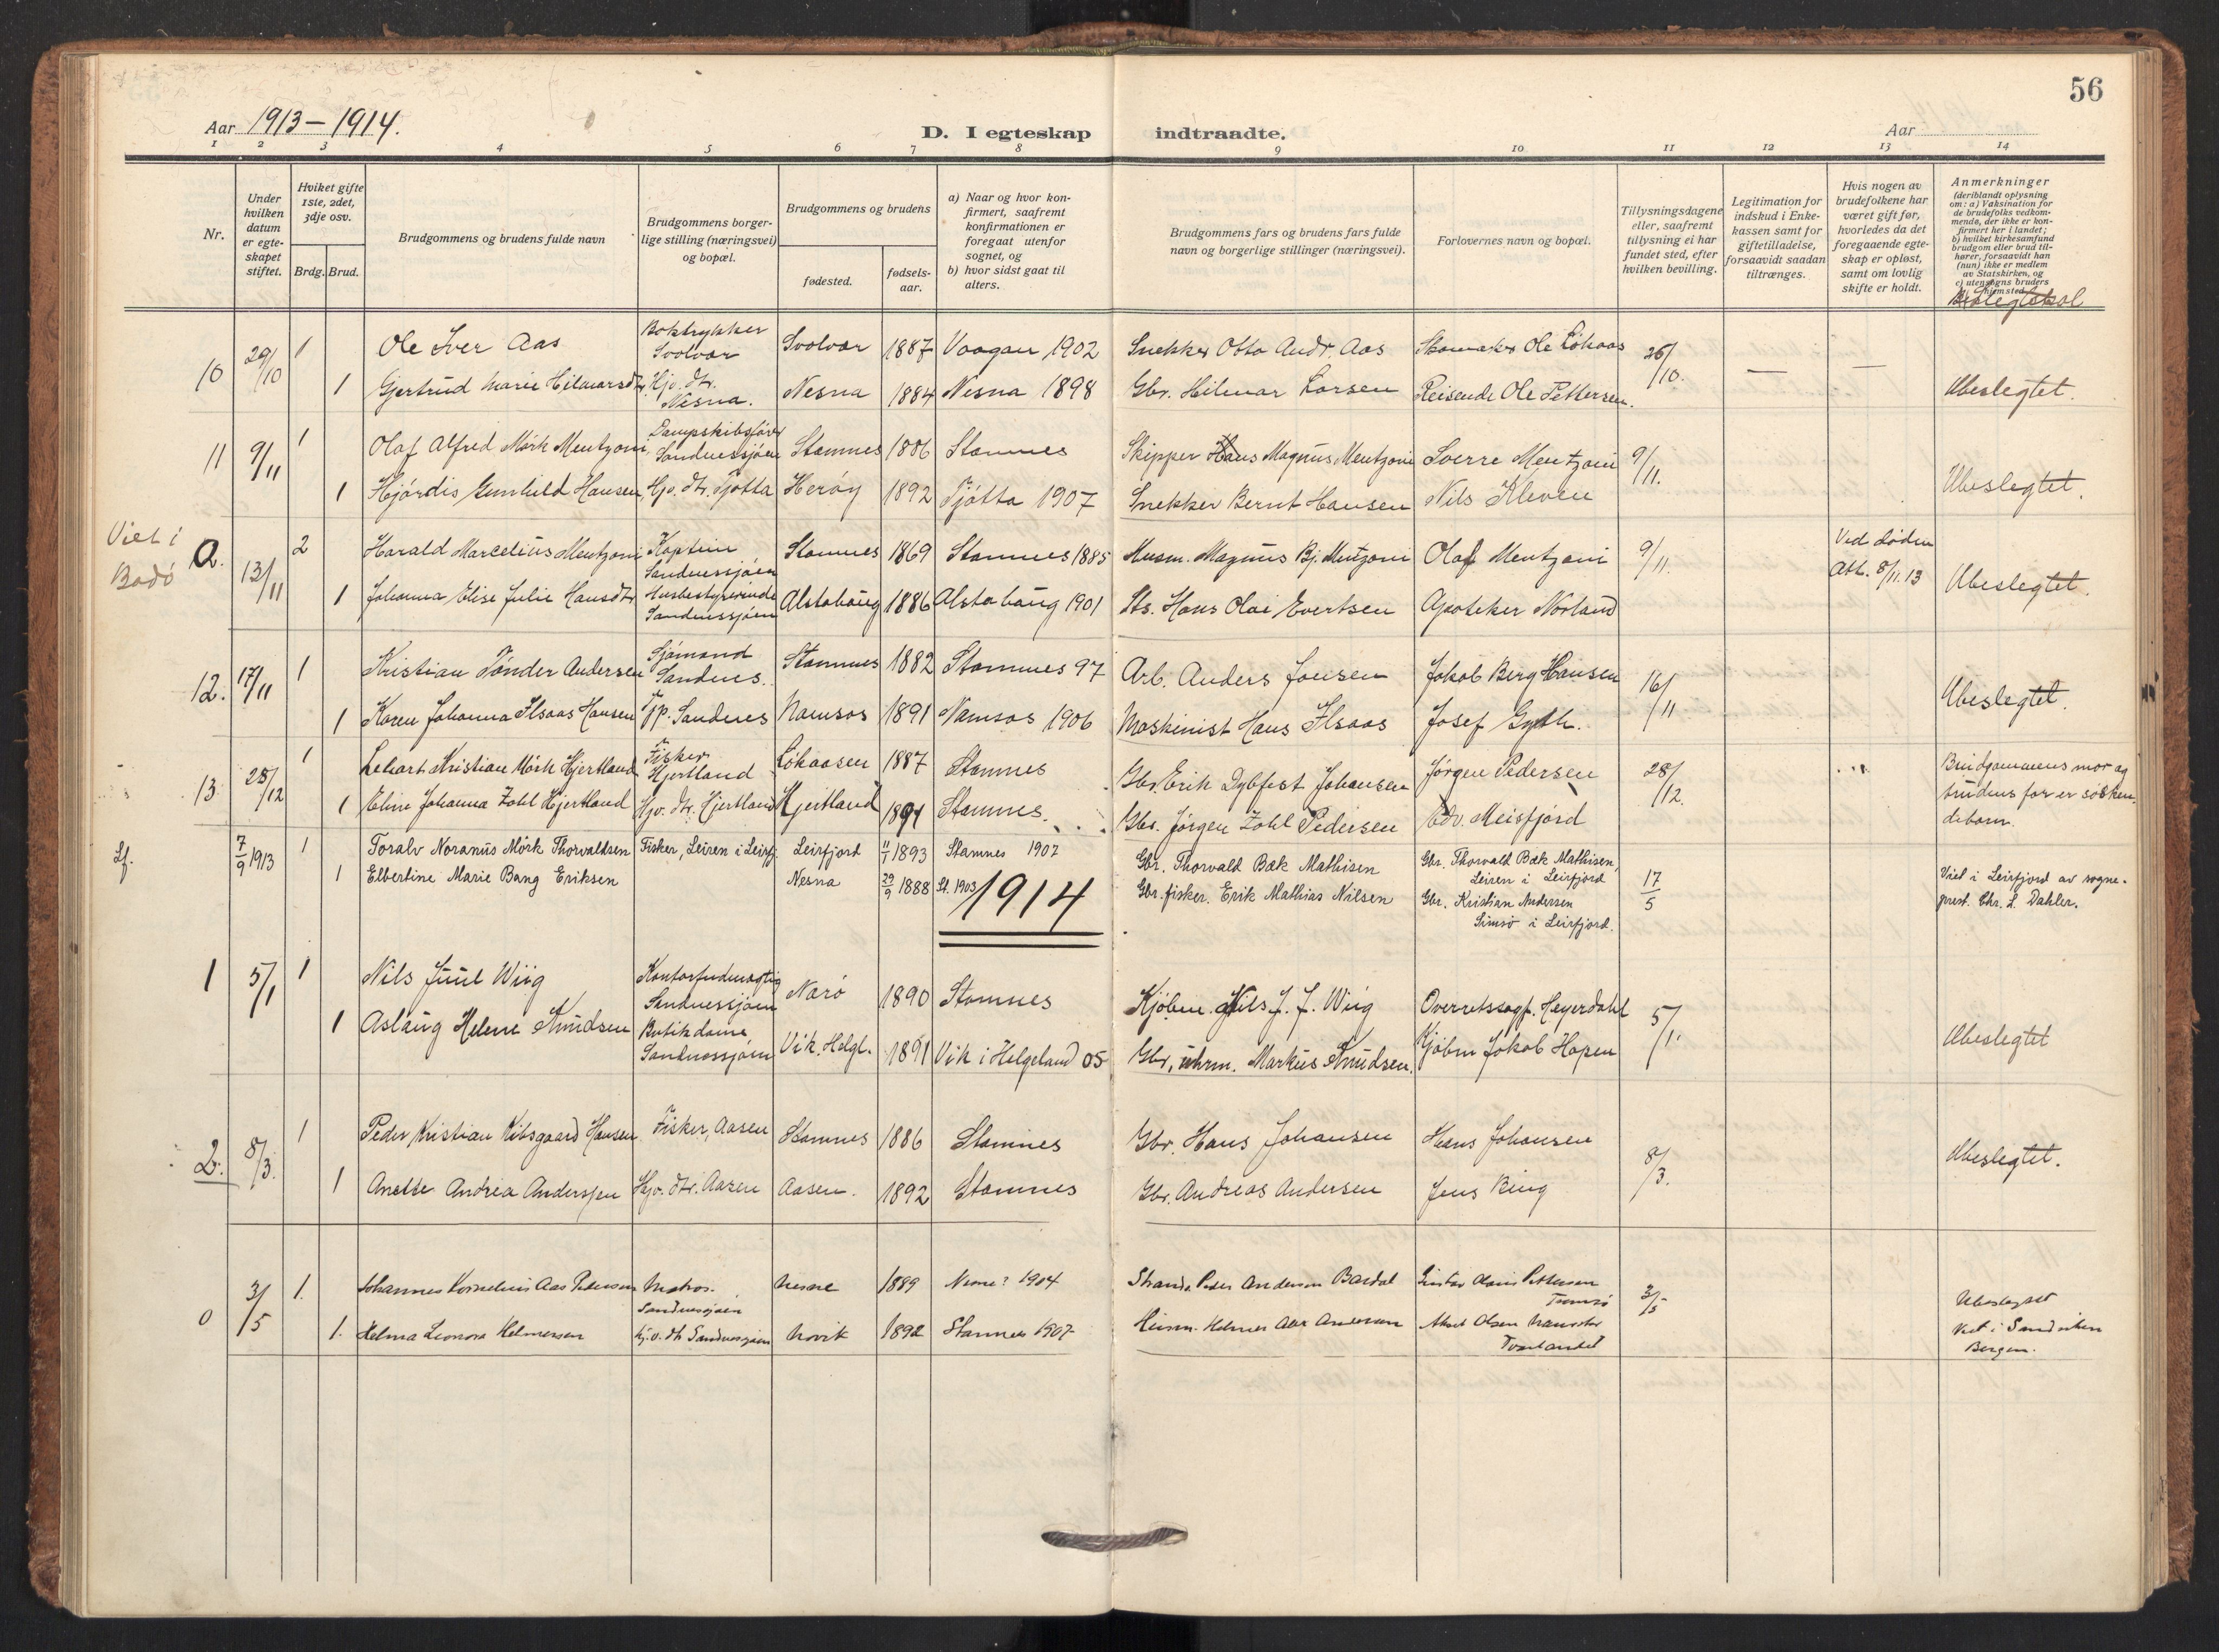 56
Aar 1913-1914.
D. I egteskap indtraadte.
Aar
1 2 3 4 5 6 7 8 9 10 11 12 13 14
Nr.
Under hvilken datum er egteskapet stiftet.
Hviket gifte 1ste, 2det, 3dje osv.
Brdg. Brud.
Brudgommens og brudens fulde navn
Brudgommens borgerlige stilling (næringsvei) og bopæl.
Brudgommens og brudens
fødested.
fødselsaar.
a) Naar og hvor konfirmert, saafremt konfirmationen er foregaat utenfor sognet, og
b) hvor sidst gaat til alters.
Brudgommens fars og brudens fars fulde navn og borgerlige stillinger (næringsvei).
Forlovernes navn og bopæl.
Tillysningsdagene eller, saafremt tillysning ei har fundet sted, efter hvilken bevilling.
Legitimation for indskud i Enkekassen samt for giftetilladelse, forsaavidt saadan tiltrænges.
Hvis nogen av brudefolkene har været gift før, hvorledes da det foregaaende egteskap er opløst, samt om lovlig skifte er holdt.
Anmerkninger
(deriblandt oplysning om: a) Vaksination for de brudefolks vedkommende, der ikke er konfirmert her i landet; b) hvilket kirkesamfund brudgom eller brud tilhører, forsaavidt han (hun) ikke er medlem av Statskirken, og c) utensogns bruders hjemsted.
10 29/10 1 Ole Iver Aas Boktrykker Svolvær Svolvær 1887 Vaagan 1902 Snekker Otto Andr. Aas Skomaker Ole Løkaas 26/10. — —
1 Gjertrud Marie Hilmarsdtr. Hjv. dtr. Nesna. Nesna 1884 Nesna 1898 Gbr. Hilmar Larsen Reisende Ole Pettersen. Ubeslegtet.
11 9/11 1 Olaf Alfred Mørk Mentzoni Dampskibsfører Sandnessjøen Stamnes 1886 Stamnes Skipper Hans Magnus Mentzoni Sverre Mentzoni 9/11.
1 Hjørdis Gunhild Hansen Hjv. dtr. Tjøtta Herøy 1892 Tjøtta 1907 Snekker Bernt Hansen Nils Kleven Ubeslegtet.
Viet i Bodø
a. 13/11 2 Harald Marcelius Mentzoni Kaptein Sandnessjøen Stamnes 1869 Stamnes 1885 Husm. Magnus Bj. Mentzoni Olaf Mentzoni 9/11. Ved døden Att. 8/11.13
1 Johanna Elise Julie Hansdtr Husbestyrerinde Sandnessjøen Alstahaug 1886 Alstahaug 1901 Sts. Hans Olai Evertsen Apoteker Norland Ubeslegtet.
12. 17/11 1 Kristian Tønder Andersen Sjømand Sandnes. Stamnes 1882 Stamnes 97 Arb. Anders Jonsen Jakob Berg Hansen 16/11
1 Karen Johanna Ilsaas Hansen Tjp. Sandnes Namsos 1891 Namsos 1906 Maskinist Hans Ilsaas Josef Ubeslegtet.
13. 28/12 1 Kristian Mørk Hjertland Fisker Hjertland Løkaasen 1887 Stamnes Gbr. Erik Dybfest Johansen Jørgen Pedersen 28/12. Brudgommens mor og
1 Eline Johanna Zahl Hjertland Hjv. dtr. Hjertland Hjertland 1891 Stamnes. Gbr. Jørgen Zahl Pedersen Edv. Meisfjord brudens far er søskendebarn.
Lf. 7/9 1913 1 Toralv Noranus Mörk Thorvaldsen Fisker, Leiren i Leirfj. Leirfjord 11/1 1893 Stamnes 1907 Gbr. Thorvald Bæk Mathisen Gbr. Thorvald Bæk Mathisen, Leiren i Leirfjord 17/5 Viet i Leirfjord av sogneprest. Chr. L. Dahler.
1 Elbertine Marie Bang Eriksen Nesna 29/9 1888 St. 1903 Gbr. fisker. Erik Mathias Nilsen Gbr. Kristian Andersen Simsø i Leirfjord.
1914
1 5/1 1 Nils Juul Wiig Kontorfuldmægtig Sandnessjøen Narø 1890 Stamnes Kjøbm. Nils J. J. Wiig Overretssagf. Heyerdahl 5/1.
1 Aslaug Helene Knudsen Butikdame Sandnessjøen Vik. Helgl. 1891 Vik i Helgeland 05 Gbr, uhrm. Markus Knudsen. Kjøbm Jakob Hapen Ubeslegtet
2. 8/3. 1 Peder Kristian Kibsgaard Hansen Fisker, Aasen Stamnes 1886 Stamnes Gbr. Hans Johansen Hans Johansen 8/3.
1 Anette Andrea Andersen Hjv. dtr. Aasen Aasen. 1892 Stamnes Gbr. Andreas Andersen Jens Bing Ubeslegtet.
0 3/5 1. Johannes Kornelius Aas Pedersen Matros. Sandnessjøen Nesne 1889 Nesne? 1904 Strands. Peder Andersen Bardal Pettersen Tromsø 3/5 Ubeslegtet
1. Helma Leonora Helmersen Hj.v. dtr Sandnessjøen 1892 Stamnes 1907 Husm. Helmer Aas Andersen Olsen Viet i Sandviken Bergen.